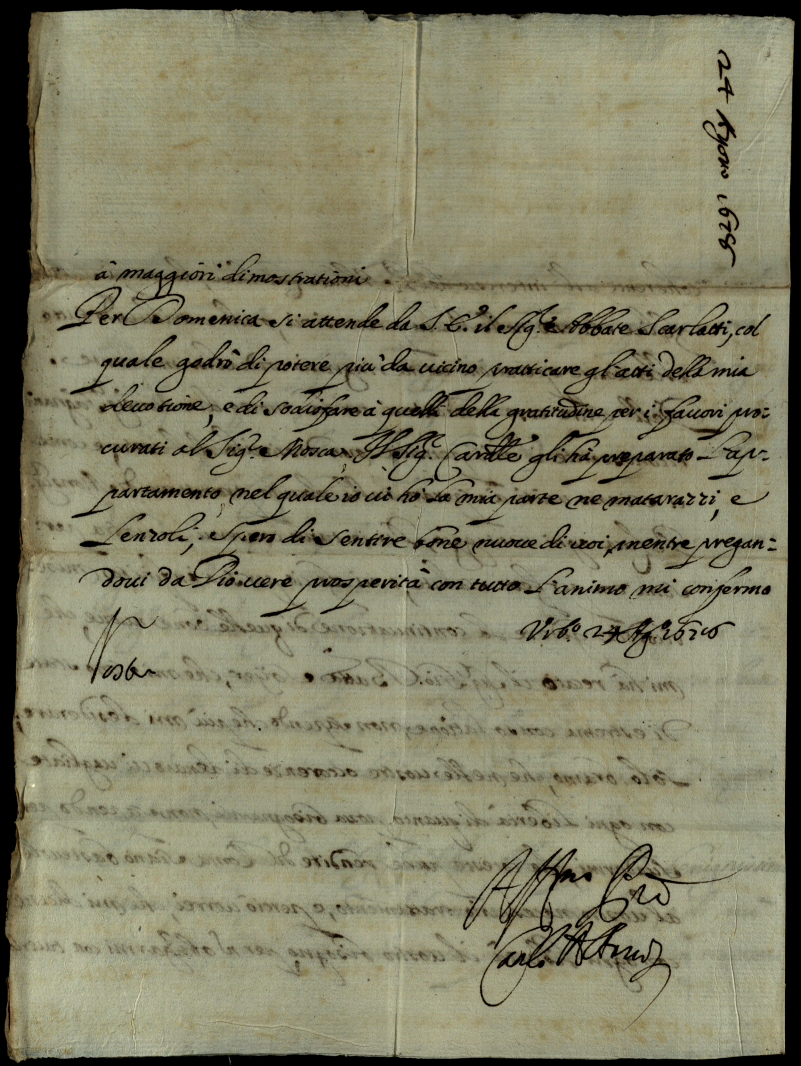 24 Agosto 1628
à maggiori dimostrationi
Per Domenica si attende da S. il Sig.r Abbate Scarlatti, col
quale godrò di potere più da vicino pratticare gl'atti della mia
devotione, e di sodisfare à quelli della gratitudine per i favori pro=
curati al Sig.r Mosca. Il Sig.r gli hà preparato l'ap=
partamento, nel quale io vi hò la mia parte ne matarazzi, e
lenzoli, spero di sentire bone nuove di voi, mentre pregan=
dovi da Dio vere prosperità con tutto l'animo mi confermo
Urb.o 24 Ag.o
Aff.mo
Carlo